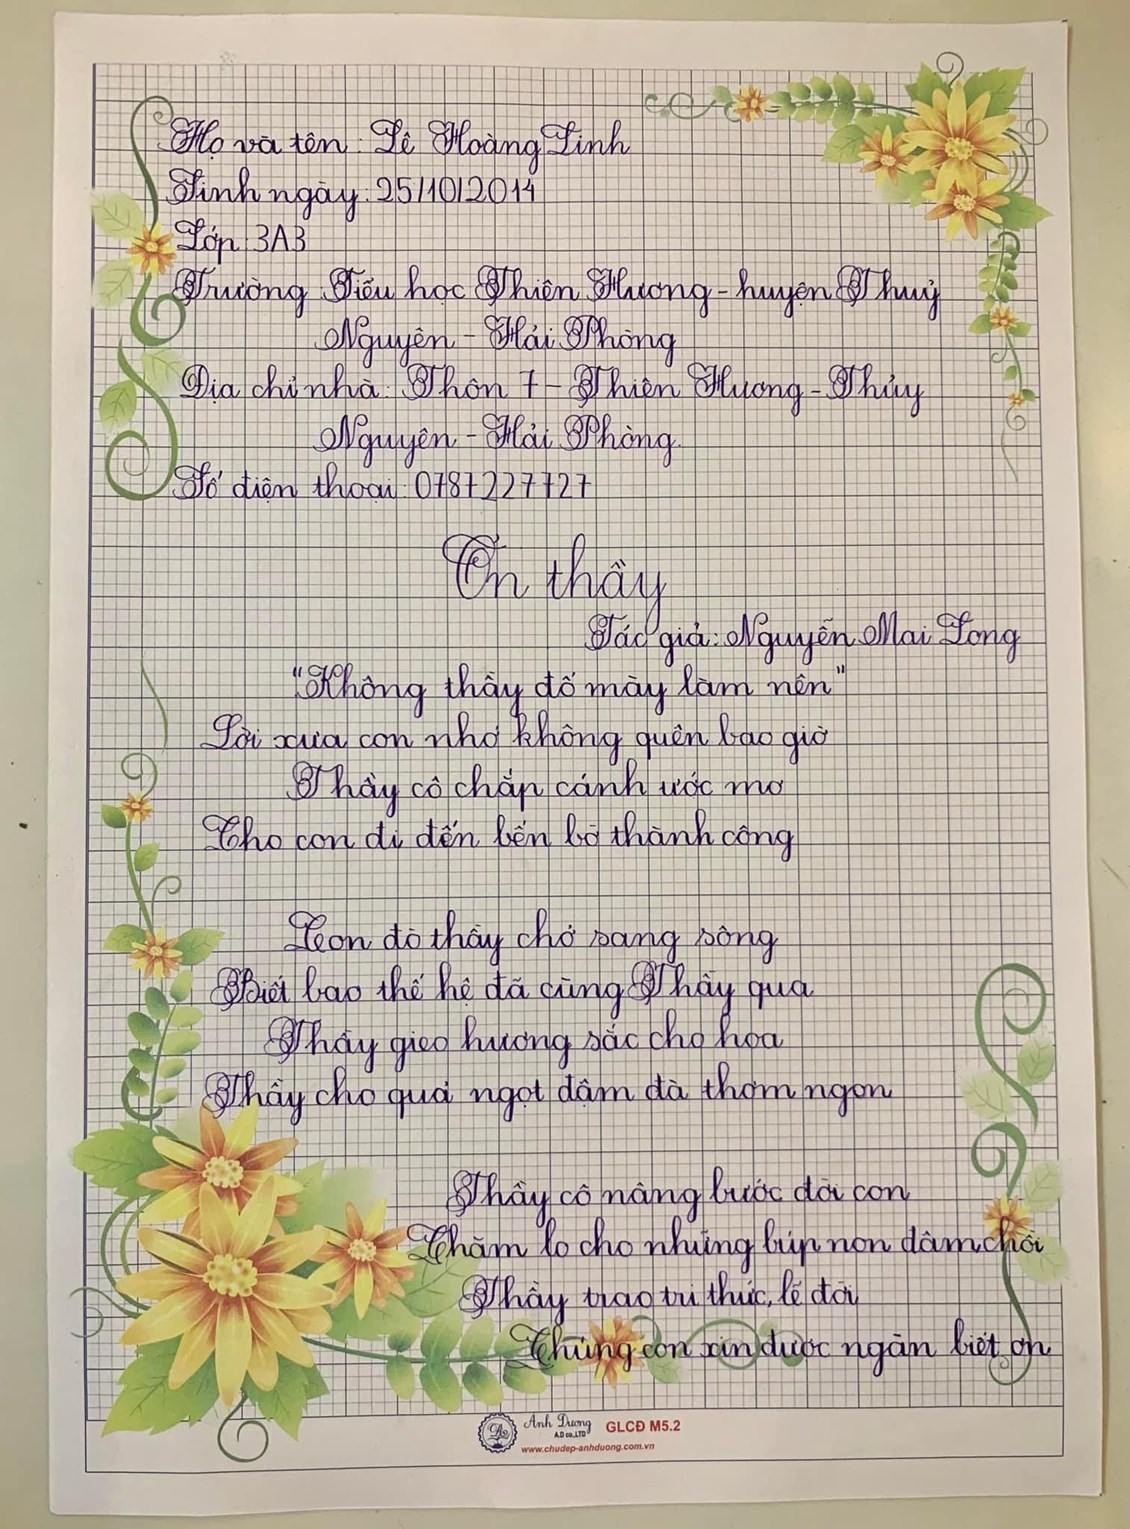 Họ và tên: Lê Hoàng Linh
Sinh ngày: 25/10/2014
Lớp: 3A3
Trường Tiểu học Thiên Hương - huyện Thuỷ
Nguyên - Hải Phòng
Địa chỉ nhà: Thôn 7 - Thiên Hương - Thủy
Nguyên - Hải Phòng.
Số điện thoại: 0787227727
Ơn thầy
Tác giả: Nguyễn Mai Long
"Không thầy đố mày làm nên"
Lời xưa con nhớ không quên bao giờ
Thầy cô chắp cánh ước mơ
Cho con đi đến bến bờ thành công
Con đò thầy chở sang sông
Biết bao thế hệ đã cùng Thầy qua
Thầy gieo hương sắc cho hoa
Thầy cho quả ngọt đậm đà thơm ngon
Thầy cô nâng bước đời con
Chăm lo cho những búp non đâm chồi
Thầy trao tri thức, lẽ đời
Chúng con xin được ngàn biết ơn
Ánh Dương
A.D co.,LTD
GLCĐ M5.2
www.chudep-anhduong.com.vn